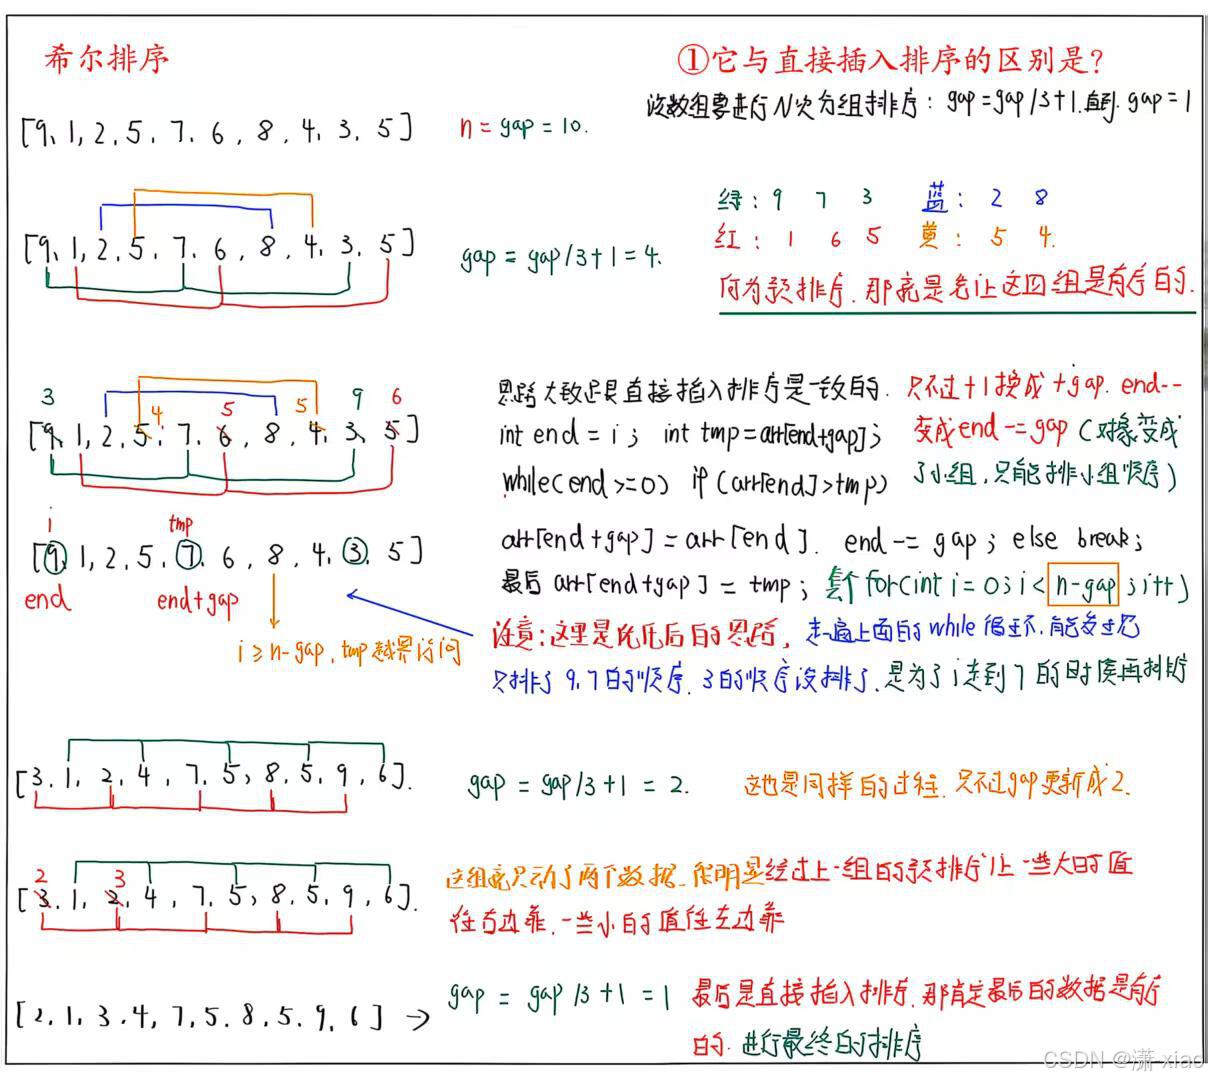 希尔排序
①它与直接插入排序的区别是?
该数组要进行N次分组排序: gap=gap/3+1.直到. gap=1
[9,1,2,5,7,6,8,4,3,5]
n=gap=10.
绿: 9 7 3 蓝: 2 8
红: 1 6 5 黄: 5 4.
[9,1,2,5,7,6,8,4,3,5]
gap=gap/3+1=4.
何为预排序.那就是先让这四组是有序的.
3 4 5 5 9 6
[9,1,2,5,7,6,8,4,3,5]
思路大致还是直接插入排序是一致的.只不过+1换成+gap. end--
int end=i; int tmp=arr[end+gap]; 变成end-=gap(对象变成
while(end>=0) if(arr[end]>tmp) 了小组,只能排小组顺序)
i tmp
[9,1,2,5,7,6,8,4,3,5]
end end+gap
i≥n-gap,tmp越界访问
arr[end+gap]=arr[end]. end-=gap; else break;
最后arr[end+gap]=tmp; 套个for(int i=0;i<n-gap;i++)
注意:这里是优化后的思路,走一遍上面的while循环,能发生
只排了9,7的顺序,3的顺序没排了.是为了i走到7的时候再排序
[3,1,2,4,7,5,8,5,9,6].
gap=gap/3+1=2.
这也是同样的过程.只不过gap更新成2.
2 3
[3,1,2,4,7,5,8,5,9,6].
这组就只动了两个数据.很明显经过上一组的预排序让一些大的值
往右边靠,一些小的值往左边靠
[2,1,3,4,7,5,8,5,9,6]→
gap=gap/3+1=1
最后是直接插入排序,那肯定最后的数据是有序
的.进行最终的排序
CSDN @潇-xiao